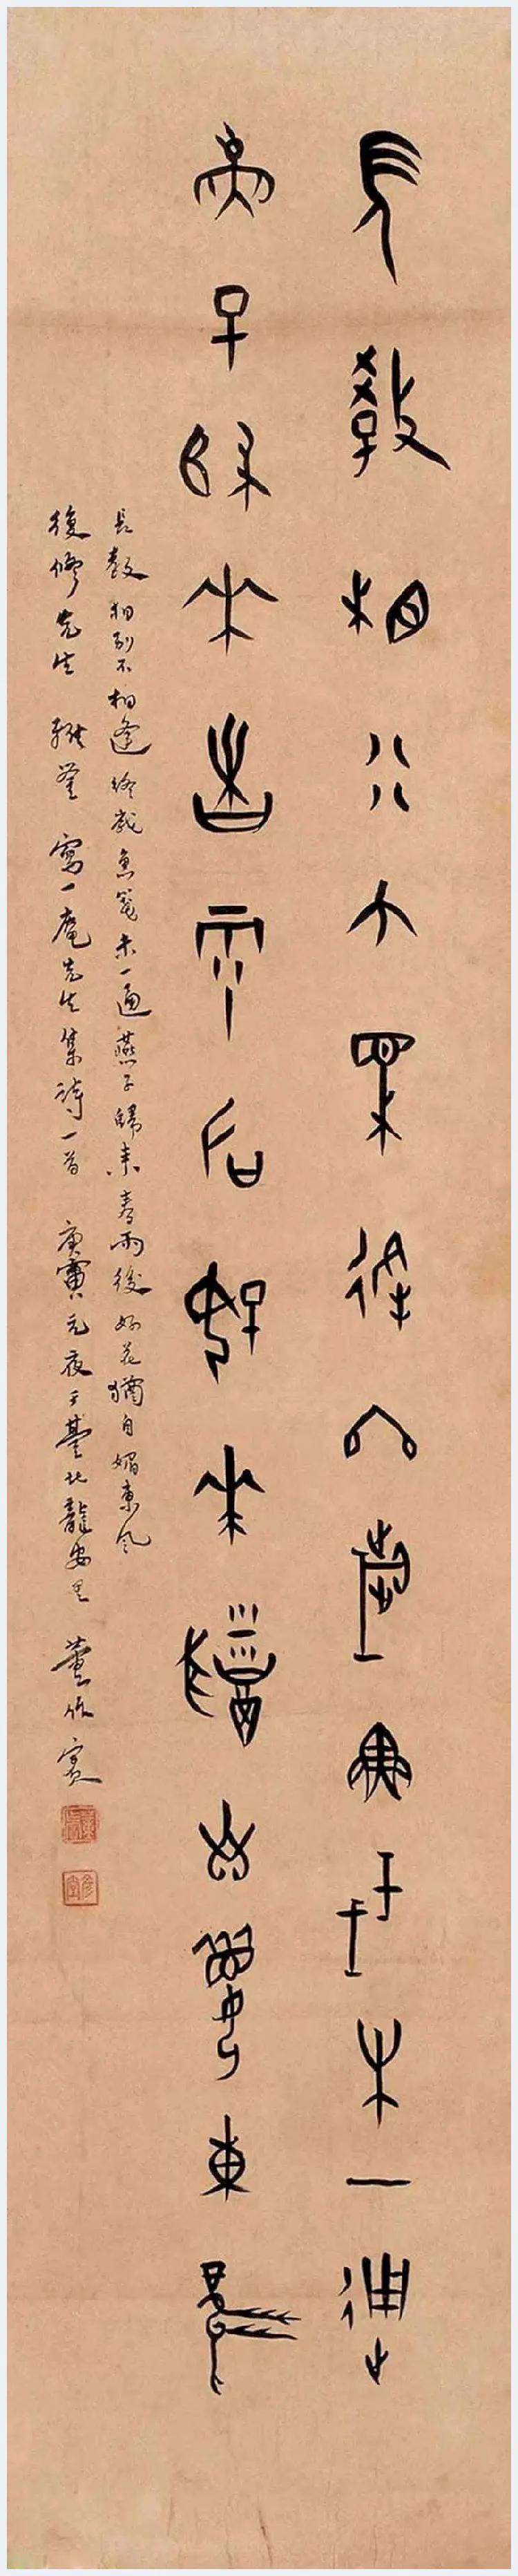 長教相別不相逢終歲魚箋未一通
燕子歸來春雨後好來猶自媚東風
長教相別不相逢終歲魚箋未一通燕子歸來春雨後好花猶自媚東風
復修先生 雅鑒 寫一庵先生集詩一首 庚寅元夜于臺北龍安里 董作賓
彥堂